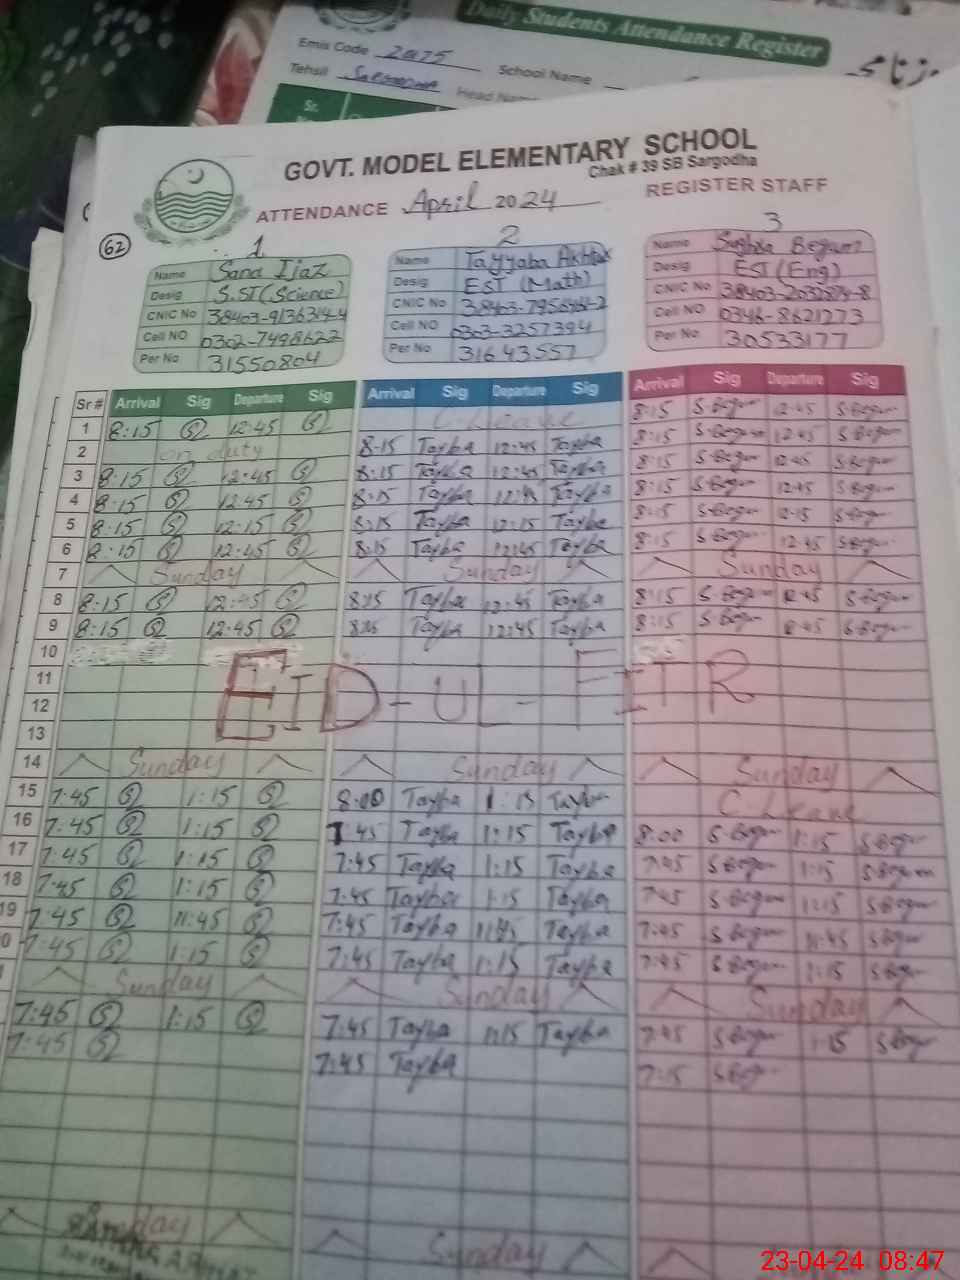 Daily Students Attendance Register
Emis Code 2075
School Name
Tehsil Sargodha
Sr.
GOVT. MODEL ELEMENTARY SCHOOL
Chak # 39 SB Sargodha
ATTENDANCE April 2024 REGISTER STAFF
62
1 2 3
Name Sana Ijaz
Desig S.ST(Science)
CNIC No 38403-9136314-4
Cell NO 0302-7498622
Per No 31550804
Name Tayyaba Akhtar
Desig EST (Math)
CNIC No
Cell NO 0303-3257394
Per No 31643557
Name Sughra Begum
Desig EST (Eng)
CNIC No
Cell NO 0346-8621773
Per No 30533177
Sr# Arrival Sig Departure Sig Arrival Sig Departure Sig Arrival Sig Departure Sig
1 8:15 12:45 C-Leave 8:15 S-Begum 12:45 S-Begum
2 on duty 8:15 Tayba 12:45 Tayba 8:15 S-Begum 12:45 S-Begum
3 8:15 12:45 8:15 Tayba 12:45 Tayba 8:15 S-Begum 12:45 S-Begum
4 8:15 12:45 8:15 Tayba 12:45 Tayba 8:15 S-Begum 12:45 S-Begum
5 8:15 12:15 8:15 Tayba 12:15 Tayba 8:15 S-Begum 12:15 S-Begum
6 8:15 12:45 8:15 Tayba 12:45 Tayba 8:15 S-Begum 12:45 S-Begum
7 Sunday Sunday Sunday
8 8:15 12:45 8:15 Tayba 12:45 Tayba 8:15 S-Begum 12:45 S-Begum
9 8:15 12:45 8:15 Tayba 12:45 Tayba 8:15 S-Begum 12:45 S-Begum
10
11 EID-UL-FITR
12
13
14 Sunday Sunday Sunday
15 7:45 1:15 8:00 Tayba 1:15 Tayba C.Leave
16 7:45 1:15 7:45 Tayba 1:15 Tayba 8:00 S-Begum 1:15 S-Begum
17 7:45 1:15 7:45 Tayba 1:15 Tayba 7:45 S-Begum 1:15 S-Begum
18 7:45 1:15 7:45 Tayba 1:15 Tayba 7:45 S-Begum 1:15 S-Begum
19 7:45 11:45 7:45 Tayba 11:45 Tayba 7:45 S-Begum 11:45 S-Begum
0 7:45 1:15 7:45 Tayba 1:15 Tayba 7:45 S-Begum 1:15 S-Begum
Sunday Sunday Sunday
7:45 1:15 7:45 Tayba 1:15 Tayba 7:45 S-Begum 1:15 S-Begum
7:45 7:45 Tayba 7:15 S-Begum
Sunday Sunday
23-04-24 08:47